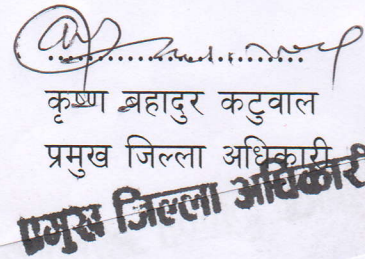 कृष्ण बहादुर कटुवाल
प्रमुख जिल्ला अधिकारी
प्रमुख जिल्ला अधिकारी